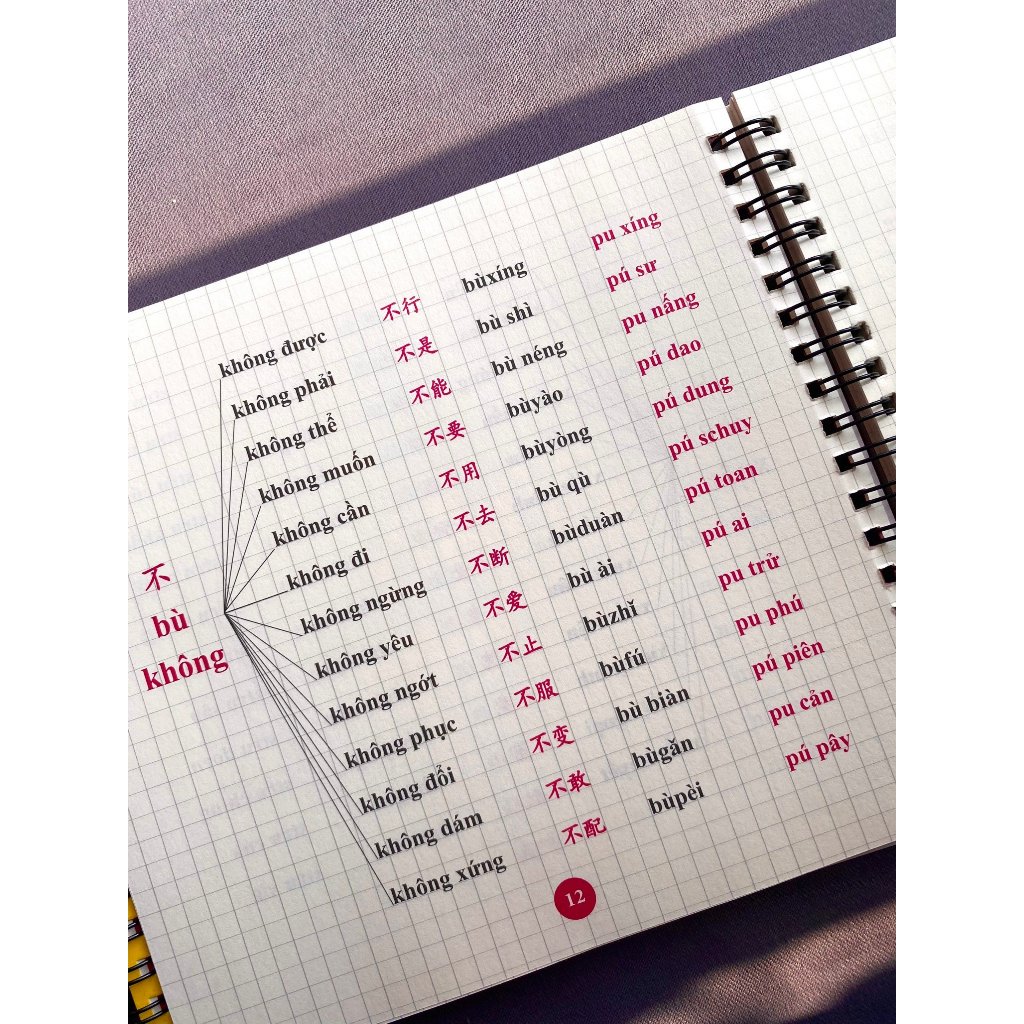 不
bù
không
không được 不行 bùxíng pu xíng
không phải 不是 bù shì pú sư
không thể 不能 bù néng pu nấng
không muốn 不要 bùyào pú dao
không cần 不用 bùyòng pú dung
không đi 不去 bù qù pú schuy
không ngừng 不断 bùduàn pú toan
không yêu 不爱 bù ài pú ai
không ngớt 不止 bùzhǐ pu trử
không phục 不服 bùfú pu phú
không đổi 不变 bù biàn pú piên
không dám 不敢 bùgǎn pu cản
không xứng 不配 bùpèi pú pây
12